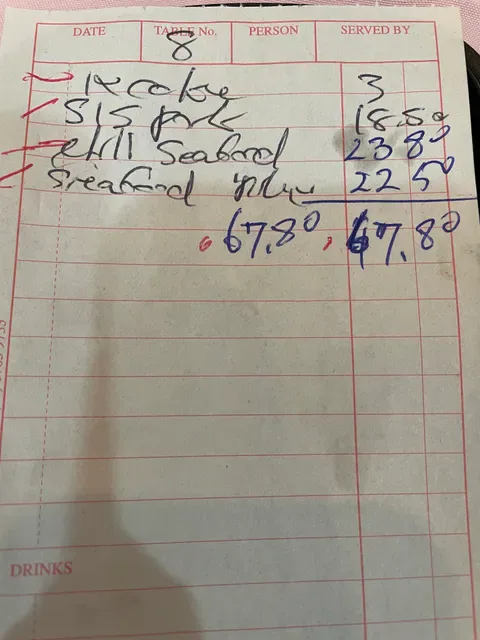 DATE TABLE No. PERSON SERVED BY
8
1x coke 3
S/S pork 18.50
chilli Seafood 23 80
Seafood 22 50
67.80, 67.80
DRINKS